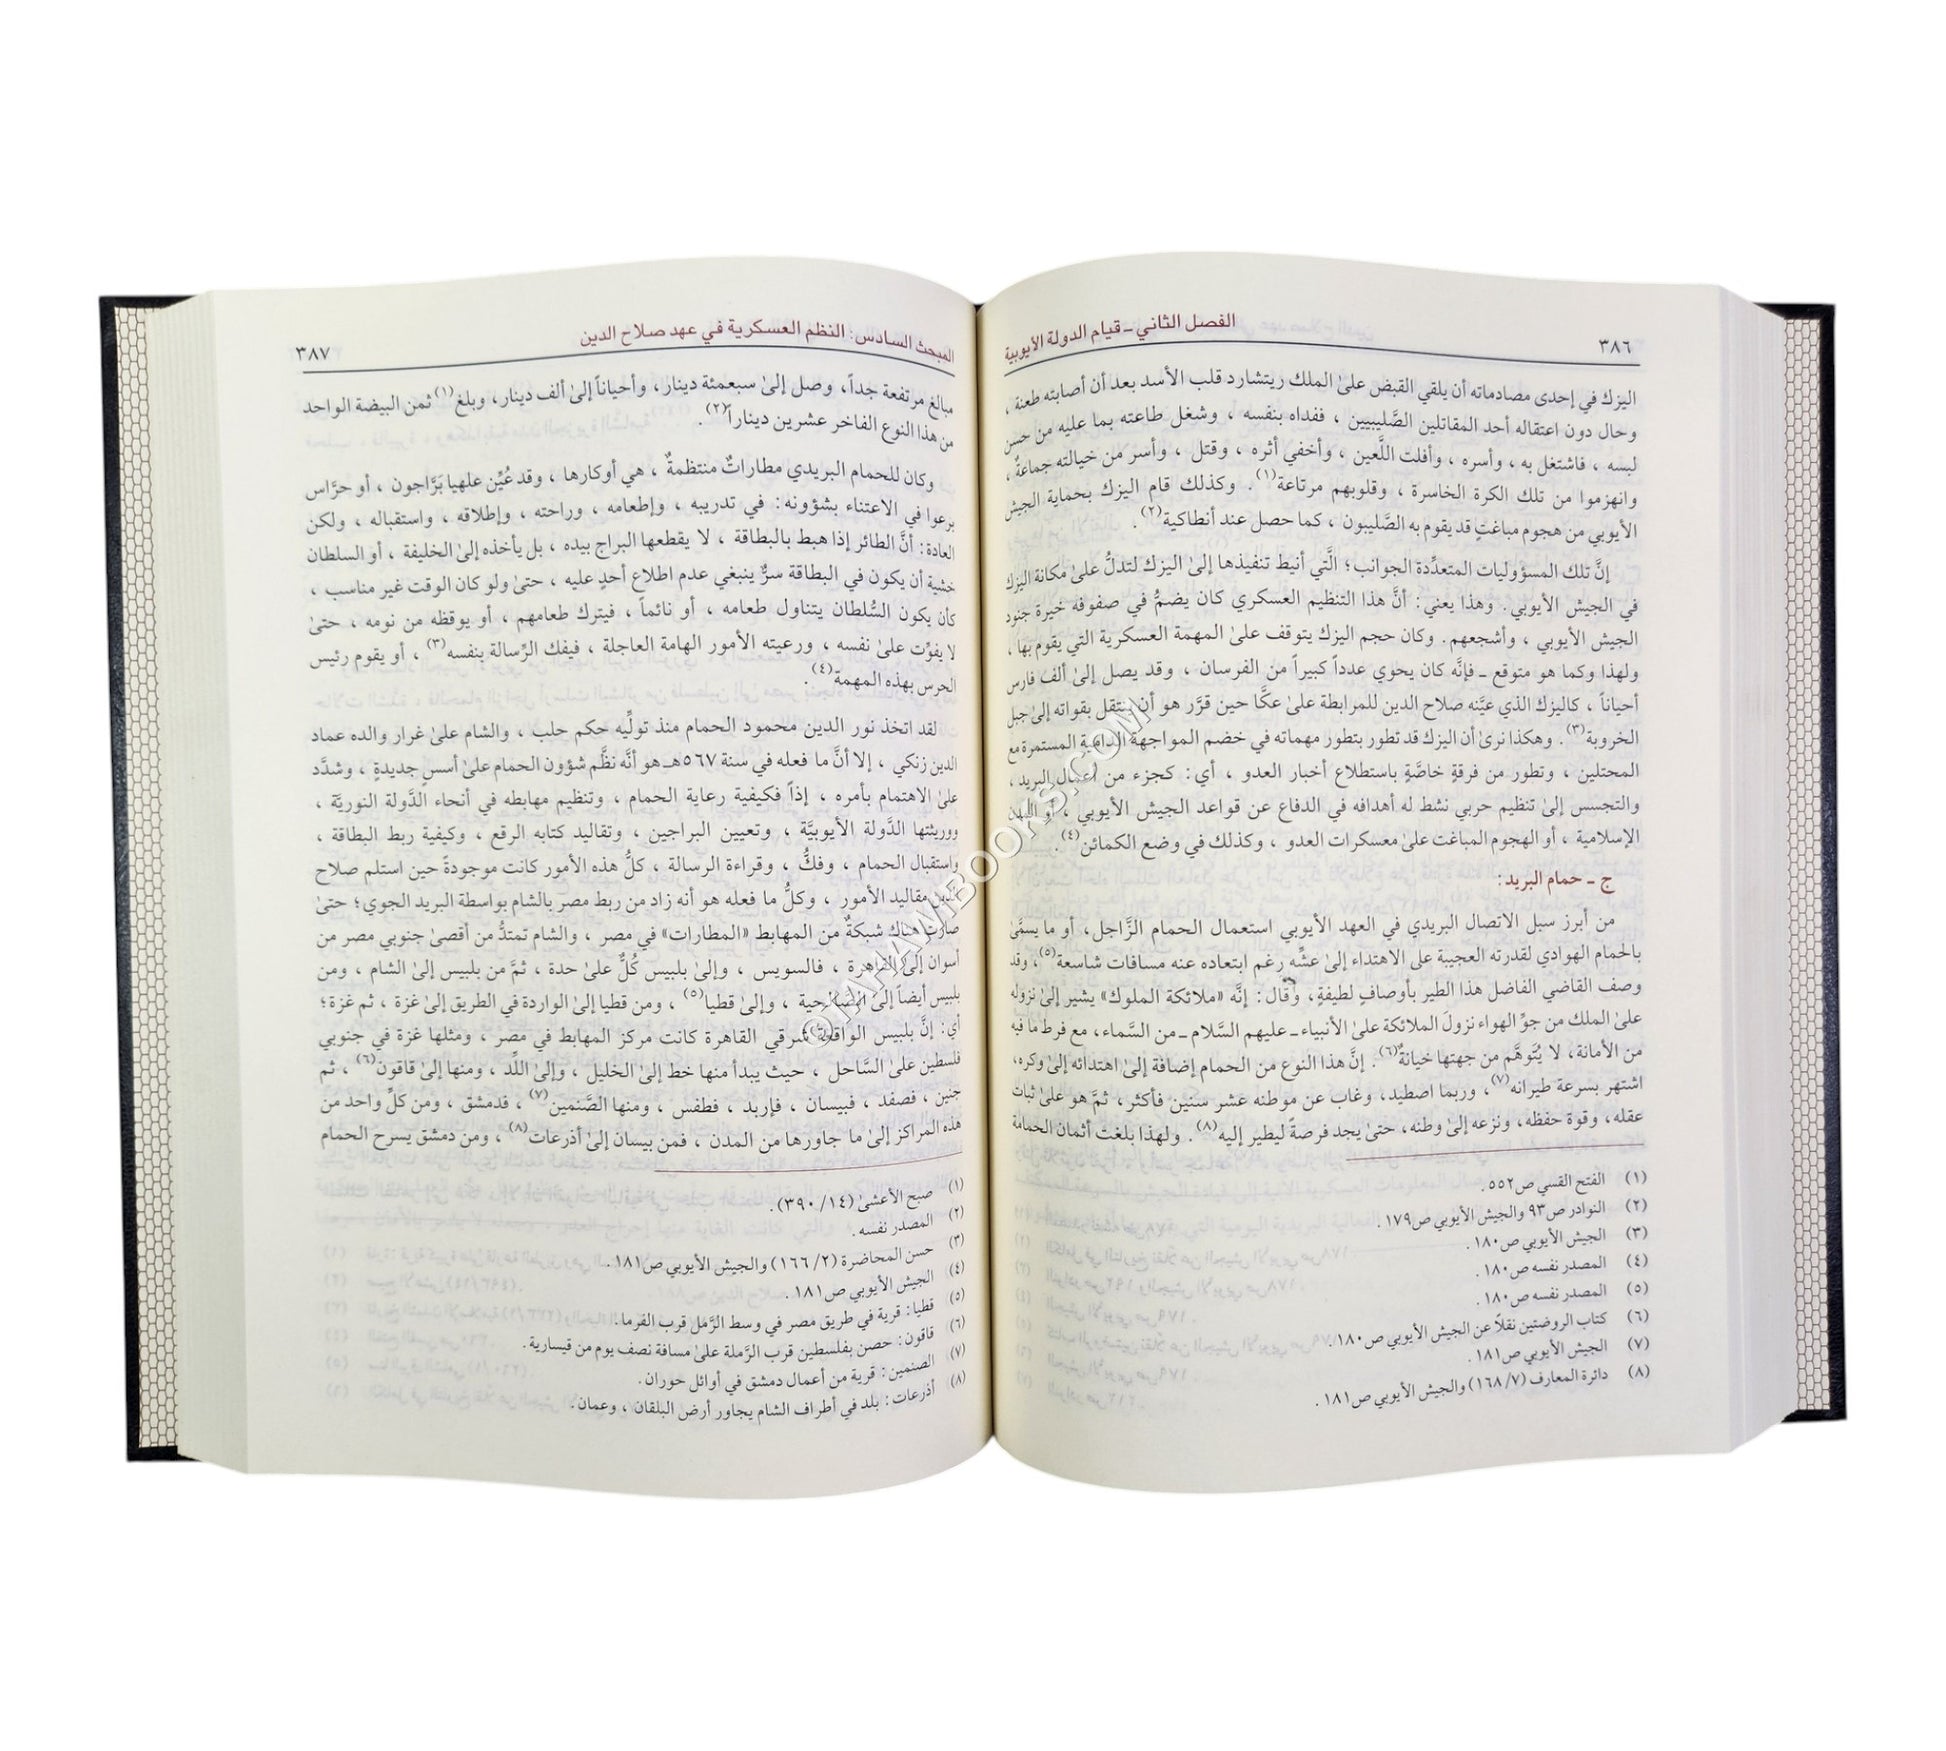 ٣٨٦
الفصل الثاني ـ قيام الدولة الأيوبية
اليزك في إحدى مصادماته أن يلقي القبض على الملك ريتشارد قلب الأسد بعد أن أصابته طعنة ،
وحال دون اعتقاله أحد المقاتلين الصَّليبيين ، ففداه بنفسه ، وشغل طاعته بما عليه من حسن
لبسه ، فاشتغل به ، وأسره ، وأفلت اللَّعين ، وأخفي أثره ، وقتل ، وأسر من خيالته جماعةٌ ،
وانهزموا من تلك الكرة الخاسرة ، وقلوبهم مرتاعة(١) . وكذلك قام اليزك بحماية الجيش
الأيوبي من هجوم مباغتٍ قد يقوم به الصَّليبون ، كما حصل عند أنطاكية(٢) .
إنَّ تلك المسؤوليات المتعدِّدة الجوانب؛ الَّتي أنيط تنفيذها إلى اليزك لتدلُّ على مكانة اليزك
في الجيش الأيوبي . وهذا يعني : أنَّ هذا التنظيم العسكري كان يضمُّ في صفوفه خيرة جنود
الجيش الأيوبي ، وأشجعهم . وكان حجم اليزك يتوقف على المهمة العسكرية التي يقوم بها ،
ولهذا وكما هو متوقع ـ فإنَّه كان يحوي عدداً كبيراً من الفرسان ، وقد يصل إلى ألف فارس
أحياناً ، كاليزك الذي عيَّنه صلاح الدين للمرابطة على عكَّا حين قرَّر هو أن ينتقل بقواته إلى جبل
الخروبة(٣) . وهكذا نرى أن اليزك قد تطور بتطور مهماته في خضم المواجهة الدامية المستمرة مع
المحتلين ، وتطور من فرقةٍ خاصَّةٍ باستطلاع أخبار العدو ، أي : كجزء من أعمال البريد ،
والتجسس إلى تنظيم حربي نشط له أهدافه في الدفاع عن قواعد الجيش الأيوبي ، أو المدن
الإسلامية ، أو الهجوم المباغت على معسكرات العدو ، وكذلك في وضع الكمائن(٤) .
ج ـ حمام البريد :
من أبرز سبل الاتصال البريدي في العهد الأيوبي استعمال الحمام الزَّاجل، أو ما يسمَّى
بالحمام الهوادي لقدرته العجيبة على الاهتداء إلى عشِّه رغم ابتعاده عنه مسافات شاسعة(٥) ، وقد
وصف القاضي الفاضل هذا الطير بأوصافٍ لطيفةٍ، وقال : إنَّه «ملائكة الملوك» يشير إلى نزوله
على الملك من جوِّ الهواء نزولَ الملائكة على الأنبياء ـ عليهم السَّلام ـ من السَّماء، مع فرط ما فيه
من الأمانة، لا يُتوهَّم من جهتها خيانةٌ(٦) . إنَّ هذا النوع من الحمام إضافة إلى اهتدائه إلى وكره،
اشتهر بسرعة طيرانه(٧) ، وربما اصطيد، وغاب عن موطنه عشر سنين فأكثر، ثمَّ هو على ثبات
عقله، وقوة حفظه، ونزعه إلى وطنه، حتى يجد فرصةً ليطير إليه(٨) . ولهذا بلغت أثمان الحمامة
(١) الفتح القسي ص٥٥٢ .
(٢) النوادر ص٩٣ والجيش الأيوبي ص١٧٩ .
(٣) الجيش الأيوبي ص١٨٠ .
(٤) المصدر نفسه ص١٨٠ .
(٥) المصدر نفسه ص١٨٠ .
(٦) كتاب الروضتين نقلاً عن الجيش الأيوبي ص١٨٠ .
(٧) الجيش الأيوبي ص١٨١ .
(٨) دائرة المعارف (١٦٨/٧) والجيش الأيوبي ص١٨١ .
المبحث السادس: النظم العسكرية في عهد صلاح الدين
٣٨٧
مبالغ مرتفعة جداً، وصل إلى سبعمئة دينار، وأحياناً إلى ألف دينار، وبلغ(١) ثمن البيضة الواحد
من هذا النوع الفاخر عشرين ديناراً(٢) .
وكان للحمام البريدي مطاراتٌ منتظمةٌ ، هي أوكارها ، وقد عُيِّن علهيا بَرَّاجون ، أو حرَّاس
برعوا في الاعتناء بشؤونه : في تدريبه ، وإطعامه ، وراحته ، وإطلاقه ، واستقباله ، ولكن
العادة : أنَّ الطائر إذا هبط بالبطاقة ، لا يقطعها البراج بيده ، بل يأخذه إلى الخليفة ، أو السلطان
خشية أن يكون في البطاقة سرٌّ ينبغي عدم اطلاع أحدٍ عليه ، حتى ولو كان الوقت غير مناسب ،
كأن يكون السُّلطان يتناول طعامه ، أو نائماً ، فيترك طعامهم ، أو يوقظه من نومه ، حتى
لا يفوِّت على نفسه ، ورعيته الأمور الهامة العاجلة ، فيفك الرِّسالة بنفسه(٣) ، أو يقوم رئيس
الحرس بهذه المهمة(٤) .
لقد اتخذ نور الدين محمود الحمام منذ تولِّيه حكم حلب ، والشام على غرار والده عماد
الدين زنكي ، إلا أنَّ ما فعله في سنة ٥٦٧هـ هو أنَّه نظَّم شؤون الحمام على أسسٍ جديدةٍ ، وشدَّد
على الاهتمام بأمره ، إذاً فكيفية رعاية الحمام ، وتنظيم مهابطه في أنحاء الدَّولة النوريَّة ،
ووريثتها الدَّولة الأيوبيَّة ، وتعيين البراجين ، وتقاليد كتابه الرقع ، وكيفية ربط البطاقة ،
واستقبال الحمام ، وفكُّ ، وقراءة الرسالة ، كلُّ هذه الأمور كانت موجودةً حين استلم صلاح
الدين مقاليد الأمور ، وكلُّ ما فعله هو أنه زاد من ربط مصر بالشام بواسطة البريد الجوي؛ حتى
صارت هناك شبكةٌ من المهابط «المطارات» في مصر ، والشام تمتدُّ من أقصى جنوبي مصر من
أسوان إلى القاهرة ، فالسويس ، وإلى بلبيس كُلٌّ على حدة ، ثمَّ من بلبيس إلى الشام ، ومن
بلبيس أيضاً إلى الصالحية ، وإلى قطيا(٥) ، ومن قطيا إلى الواردة في الطريق إلى غزة ، ثم غزة؛
أي : إنَّ بلبيس الواقعة شرقي القاهرة كانت مركز المهابط في مصر ، ومثلها غزة في جنوبي
فلسطين على السَّاحل ، حيث يبدأ منها خط إلى الخليل ، وإلى اللِّد ، ومنها إلى قاقون(٦) ، ثم
جنين ، فصفد ، فبيسان ، فإربد ، فطفس ، ومنها الصَّنمين(٧) ، فدمشق ، ومن كلِّ واحد من
هذه المراكز إلى ما جاورها من المدن ، فمن بيسان إلى أذرعات(٨) ، ومن دمشق يسرح الحمام
(١) صبح الأعشى (٣٩٠/١٤) .
(٢) المصدر نفسه .
(٣) حسن المحاضرة (١٦٦/٢) والجيش الأيوبي ص١٨١ .
(٤) الجيش الأيوبي ص١٨١ .
(٥) قطيا : قرية في طريق مصر في وسط الرَّمل قرب الفرما .
(٦) قاقون : حصن بفلسطين قرب الرَّملة على مسافة نصف يوم من قيسارية .
(٧) الصنمين : قرية من أعمال دمشق في أوائل حوران .
(٨) أذرعات : بلد في أطراف الشام يجاور أرض البلقان ، وعمان .